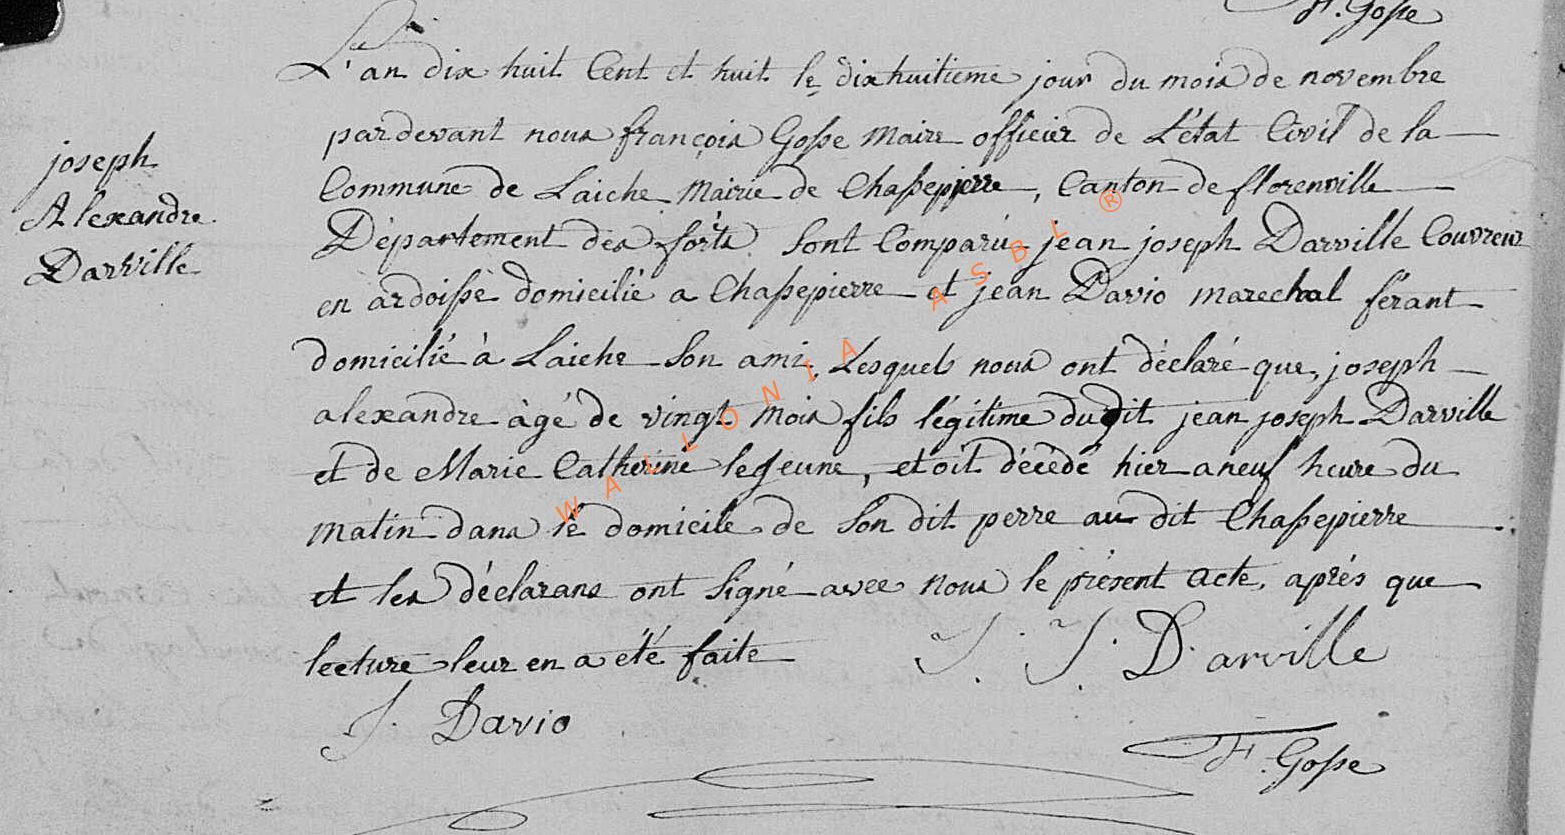 F. Gosse
L'an dix huit Cent et huit le dixhuitieme jour du mois de novembre
pardevant nous françois Gosse Maire officier de L'état Civil de la
joseph
Alexandre
Darville
Commune de Laiche Mairie de Chassepierre, Canton de florenville
Département des forts sont Comparu jean joseph Darville Couvreur
en ardoisse domicilié a Chassepierre et jean Davio marechal férant
domicilié à Laiche son ami, Lesquels nous ont déclaré que, joseph
alexandre àgé de vingt mois fils légitime dudit jean joseph Darville
et de Marie Catherine leJeune, etoit décédé hier a neuf heure du
matin dans le domicile de son dit perre au dit Chassepierre
et les déclarans ont signé avec nous le présent acte, aprés que
lecture leur en a été faite
J. J. D'arville
J. Davio
F. Gosse
WALLONIA ASBL ®